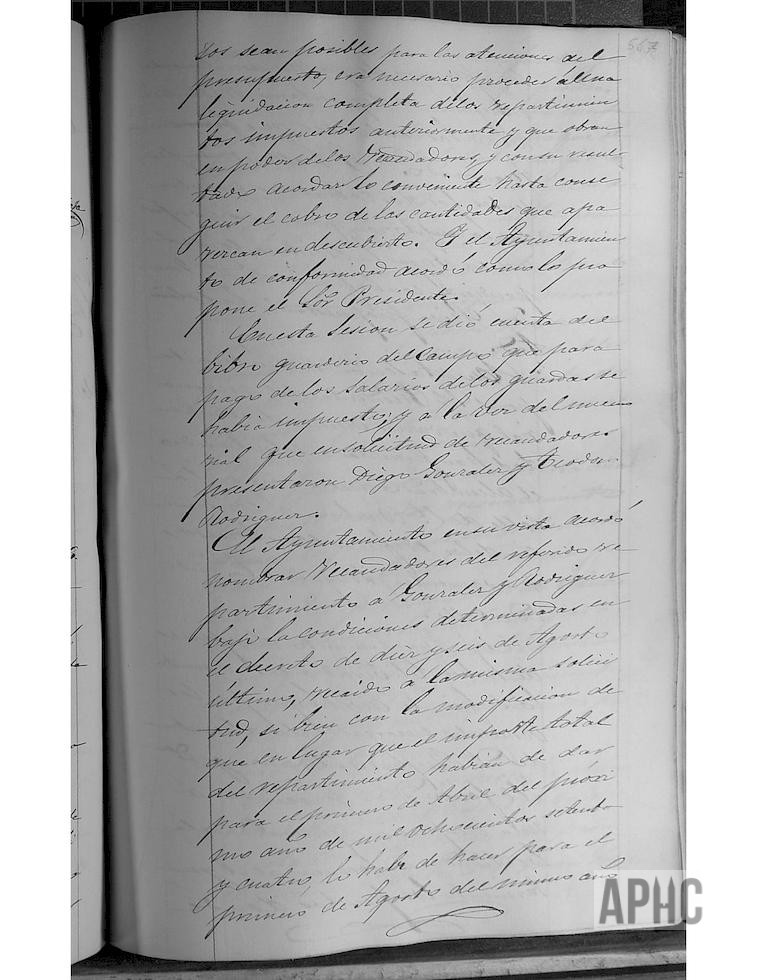 567
tos sean posibles para las atenciones del
presupuesto, era necesario proceder a una
liquidacion completa de los repartimien
tos impuestos anteriormente y que obran
en poder de los recaudadores, y con su resul-
tado acordar lo conveniente hasta conse
guir el cobro de las cantidades que apa
rezcan en descubierto. Y el Ayuntamien
to de conformidad acordó como lo pro
pone el Sor Presidente.
En esta Sesion se dió cuenta del
libro guarderio del Campo, que para
pago de los salarios de los guardas se
habia impuesto; y a la vez del memo
rial que en solicitud de recaudadores
presentaron Diego Gonzalez y Teodor
Rodriguez.
El Ayuntamiento en su vista acordó
nombrar Recaudadores del referido re
partimiento a Gonzalez y Rodriguez
bajo la condiciones determinadas en
el decreto de diez y seis de Agosto
último, recaido a la misma solici
tud, si bien con la modificacion de
que en lugar que el importe total
del repartimiento habian de dar
para el primero de Abril del próxi
mo año de mil ochocientos setenta
y cuatro, lo habr de hacer para el
primero de Agosto del mismo año
APHC